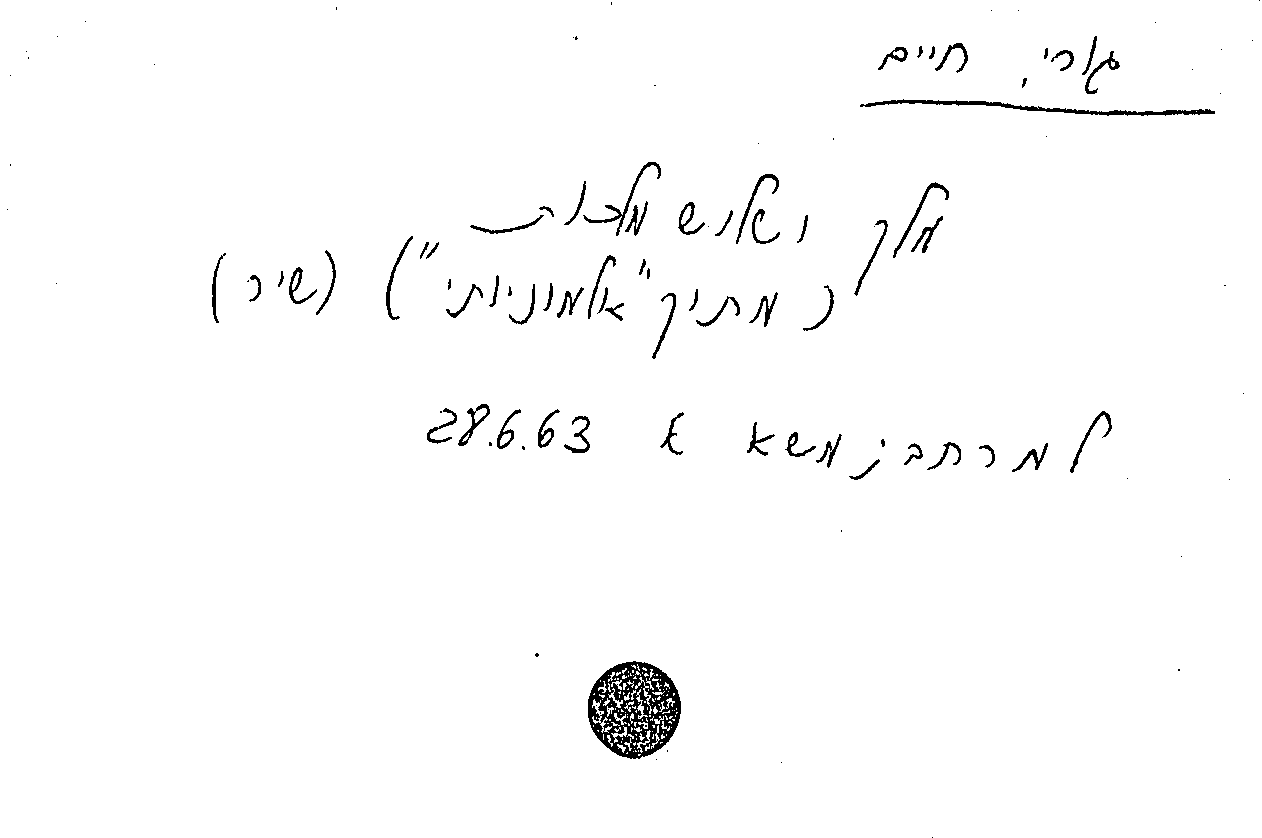 גורי, חיים
מלך ושלוש מלכות
(מתיך "אלמוניותי") (שיר)
למרחב; משא א 28.6.63